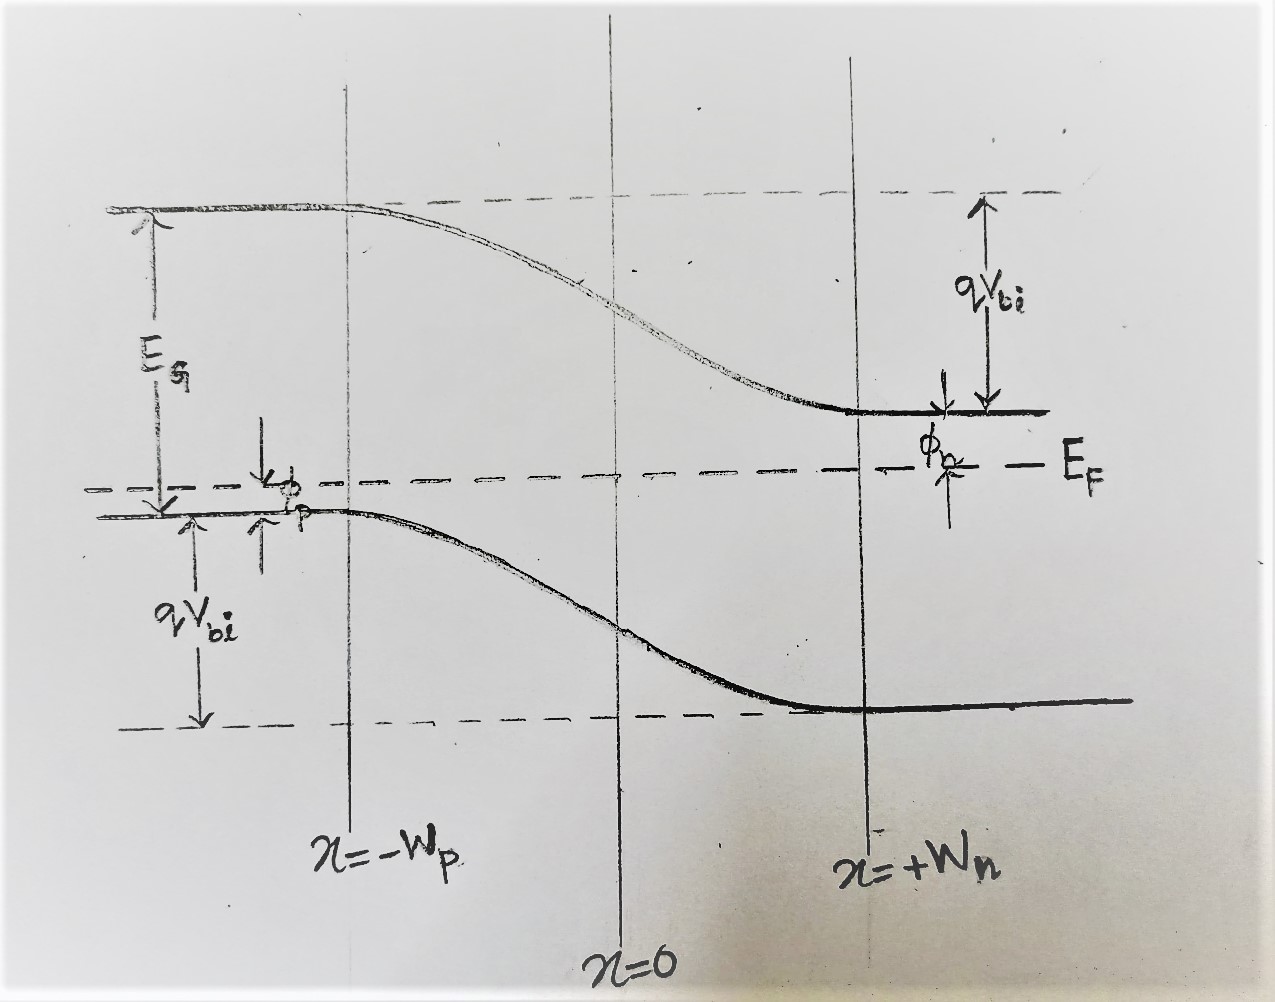 qVbi
EG
ϕn
EF
ϕp
qVbi
x=-Wp
x=+Wn
x=0